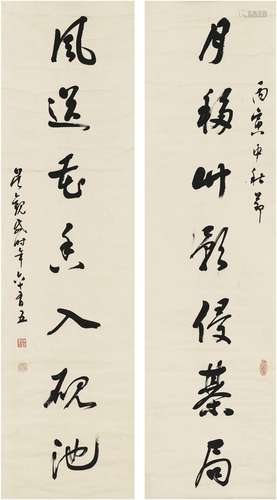 丙寅中秋節
月移竹影侵棊局
風送花香入硯池
時年六十有五